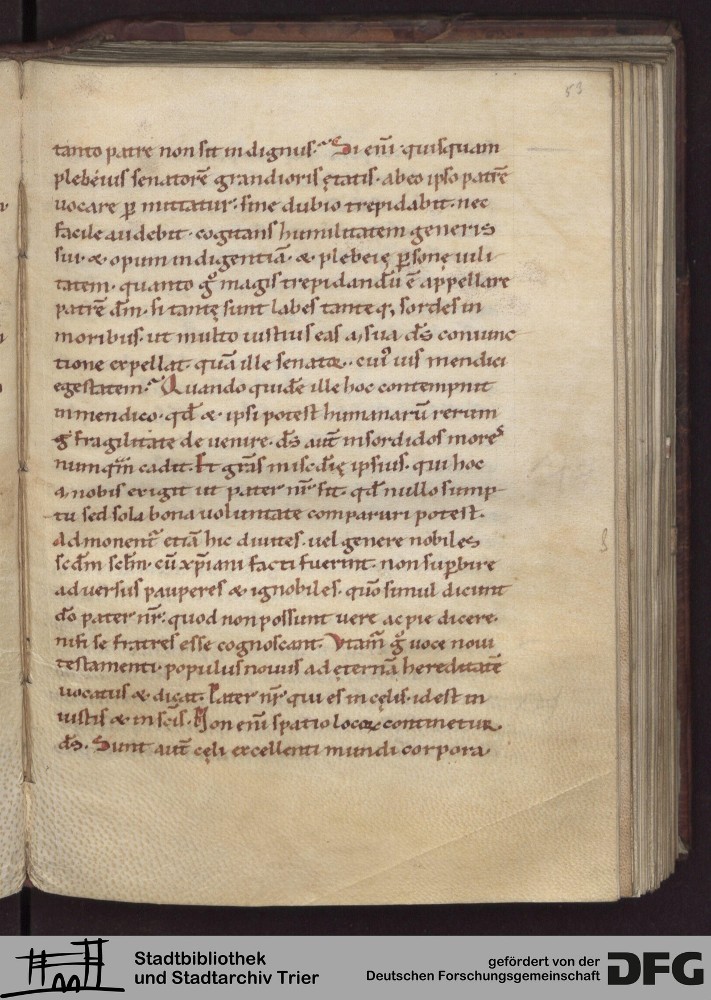 53
tanto patre non sit indignus. Si eni̅ quisquam
plebeius senatore̅ grandioris ętatis. abeo ipso patre̅
uocare p̲ mittatur. sine dubio trepidabit. nec
facile audebit. cogitans humilitatem generis
sui. & opum indigentia̅. & plebeię p̲sonę uili
tatem. quanto g̊ magis trepidandu̅ e̅ appellare
patre̅ dm̅. si tantę sunt labes tanteq; sordes in
moribus. ut multo iustius eas a sua ds̅ coniunc
tione expellat. qua̅ ille senator. cuiꝰ uis mendici
egestatem. Quando quide̅ ille hoc contempnit
in mendico. qd̅ & ipsi potest humanaru̅ rerum
g̊ fragilitate de uenire. ds̅ aut̅ in sordidos mores
numqm̅ cadit. Et gra̅s misc̅die̜ ipsius. qui hoc
a nobis exigit ut pater nr̅ sit. qd̅ nullo sump
tu sed sola bona uoluntate comparari potest.
Admonent̅ etia̅ hic diuites. uel genere nobiles
scd̅m sclm̅. cu̅ xp̅iani facti fuerint. non sup̲bire
aduersus pauperes & ignobiles. quo̅ simul dicunt
do̅ pater nr̅. quod non possunt uere ac pie dicere.
nisi se fratres esse cognoscant. Vtat̅ g̊ uoce noui
testamenti. populus nouus ad ęterna̅ hereditate̅
uocatus & dicat. Pater nr̅ qui es in cęlis. id est in
iustis & in sc̅is. Non eni̅ spatio locoꝝ continetur
ds̅. Sunt aut̅ cęli excellenti mundi corpora
Stadtbibliothek
und Stadtarchiv Trier
gefördert von der
Deutschen Forschungsgemeinschaft
DFG